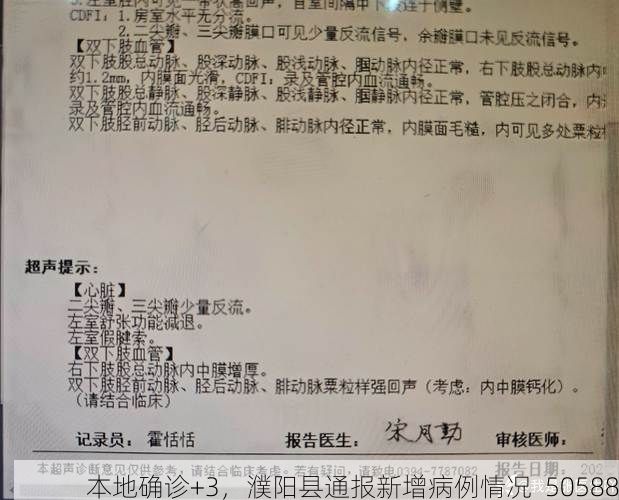 3.左室腔内可见一带状强回声，自室间隔中下段连于侧壁。
CDFI：1.房室水平无分流。
2.二尖瓣、三尖瓣膜口可见少量反流信号，余瓣膜口未见反流信号。
【双下肢血管】
双下肢股总动脉、股深动脉、股浅动脉、腘动脉内径正常，右下肢股总动脉内中
约1.2mm，内膜面光滑，CDFI：录及管腔内血流通畅。
双下肢股总静脉、股深静脉、股浅静脉、腘静脉内径正常，管腔压之闭合，内
录及管腔内血流通畅。
双下肢胫前动脉、胫后动脉、腓动脉内径正常，内膜面毛糙，内可见多处粟粒样
超声提示：
【心脏】
二尖瓣、三尖瓣少量反流。
左室舒张功能减退。
左室假腱索。
【双下肢血管】
右下肢股总动脉内中膜增厚。
双下肢胫前动脉、胫后动脉、腓动脉粟粒样强回声（考虑：内中膜钙化）。
（请结合临床）
记录员：霍恬恬 报告医生：宋月勤 审核医师：
本超声诊断意见仅供参考，请结合临床考虑。若有疑问，请致电0394-7787082 报告日期：202
本地确诊+3，濮阳县通报新增病例情况-50588